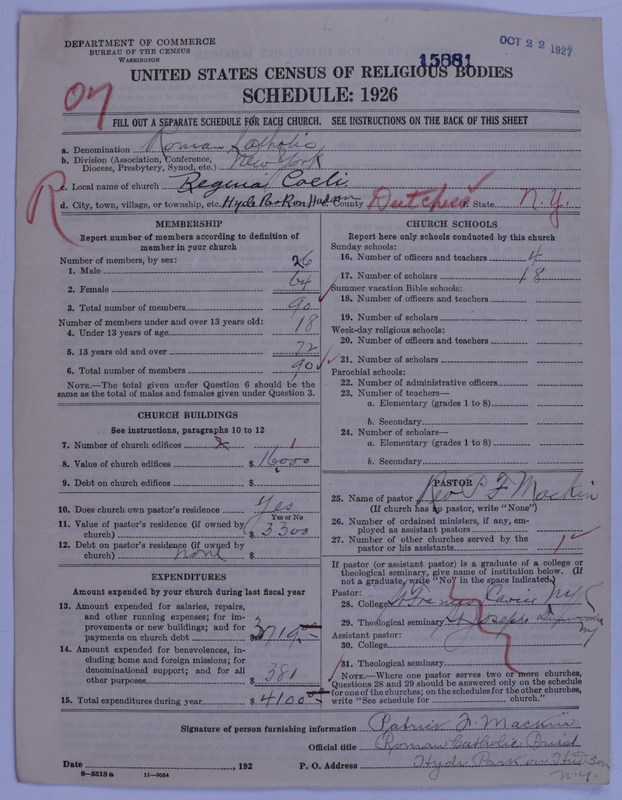 DEPARTMENT OF COMMERCE
BUREAU OF THE CENSUS
WASHINGTON
15881
OCT 22 1927
UNITED STATES CENSUS OF RELIGIOUS BODIES
SCHEDULE: 1926
FILL OUT A SEPARATE SCHEDULE FOR EACH CHURCH. SEE INSTRUCTIONS ON THE BACK OF THIS SHEET
a. Denomination Roman Catholic
b. Division (Association, Conference, Diocese, Presbytery, Synod, etc.) New York
R
c. Local name of church Regina Coeli
d. City, town, village, or township, etc. Hyde Park on Hudson e. County Dutchess f. State N.Y.
MEMBERSHIP
Report number of members according to definition of
member in your church
Number of members, by sex:
1. Male 26
2. Female 64
3. Total number of members 90
Number of members under and over 13 years old:
4. Under 13 years of age 18
5. 13 years old and over 72
6. Total number of members 90
NOTE.—The total given under Question 6 should be the
same as the total of males and females given under Question 3.
CHURCH BUILDINGS
See instructions, paragraphs 10 to 12
7. Number of church edifices 1
8. Value of church edifices $ 16000
9. Debt on church edifices $
10. Does church own pastor's residence Yes
Yes or No
11. Value of pastor's residence (if owned by
church) $ 3300
12. Debt on pastor's residence (if owned by
church) none $
EXPENDITURES
Amount expended by your church during last fiscal year
13. Amount expended for salaries, repairs,
and other running expenses; for im-
provements or new buildings; and for
payments on church debt $ 3719
14. Amount expended for benevolences, in-
cluding home and foreign missions; for
denominational support; and for all
other purposes $ 381
15. Total expenditures during year $ 4100
CHURCH SCHOOLS
Report here only schools conducted by this church
Sunday schools:
16. Number of officers and teachers 4
17. Number of scholars 18
Summer vacation Bible schools:
18. Number of officers and teachers
19. Number of scholars
Week-day religious schools:
20. Number of officers and teachers
21. Number of scholars
Parochial schools:
22. Number of administrative officers
23. Number of teachers—
a. Elementary (grades 1 to 8)
b. Secondary
24. Number of scholars—
a. Elementary (grades 1 to 8)
b. Secondary
PASTOR
25. Name of pastor Rev P F Mackin
(If church has no pastor, write "None")
26. Number of ordained ministers, if any, em-
ployed as assistant pastors
27. Number of other churches served by the
pastor or his assistants 1
If pastor (or assistant pastor) is a graduate of a college or
theological seminary, give name of institution below. (If
not a graduate, write "No" in the space indicated.)
Pastor:
28. College St Francis Xavier NY
29. Theological seminary St Josephs Dunwoodie NY
Assistant pastor:
30. College
31. Theological seminary
NOTE.—Where one pastor serves two or more churches,
Questions 28 and 29 should be answered only on the schedule
for one of the churches; on the schedules for the other churches,
write "See schedule for church."
Signature of person furnishing information Patrick F. Mackin
Official title Roman Catholic Priest
Date , 192 P. O. Address Hyde Park on Hudson
N.Y.
8—5518a 11—9034